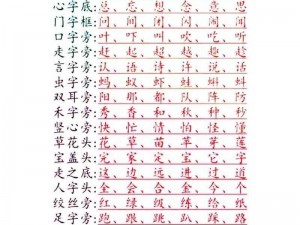 心字底:总、忘、想、念、意、思
门字框:问、闪、间、闻、闹、闯
口字旁:叶、吓、叫、吹、吃、听
走字旁:赶、起、超、越、趣、趁
言字旁:认、语、诗、许、说、话
虫字旁:蚂、蚁、虾、蛙、蝌、蚪
双耳旁:阳、那、都、队、阵、防
禾字旁:秀、香、和、秋、种、秒
竖心旁:快、忙、情、怕、怪、懂
草花头:花、草、苗、苹、芽、莲
宝盖头:完、家、定、宝、它、字
走之底:这、边、远、进、过、道
人字头:全、会、合、金、今、个
绞丝旁:红、绿、级、练、给、纸
足字旁:跑、跟、跳、趴、踩、路